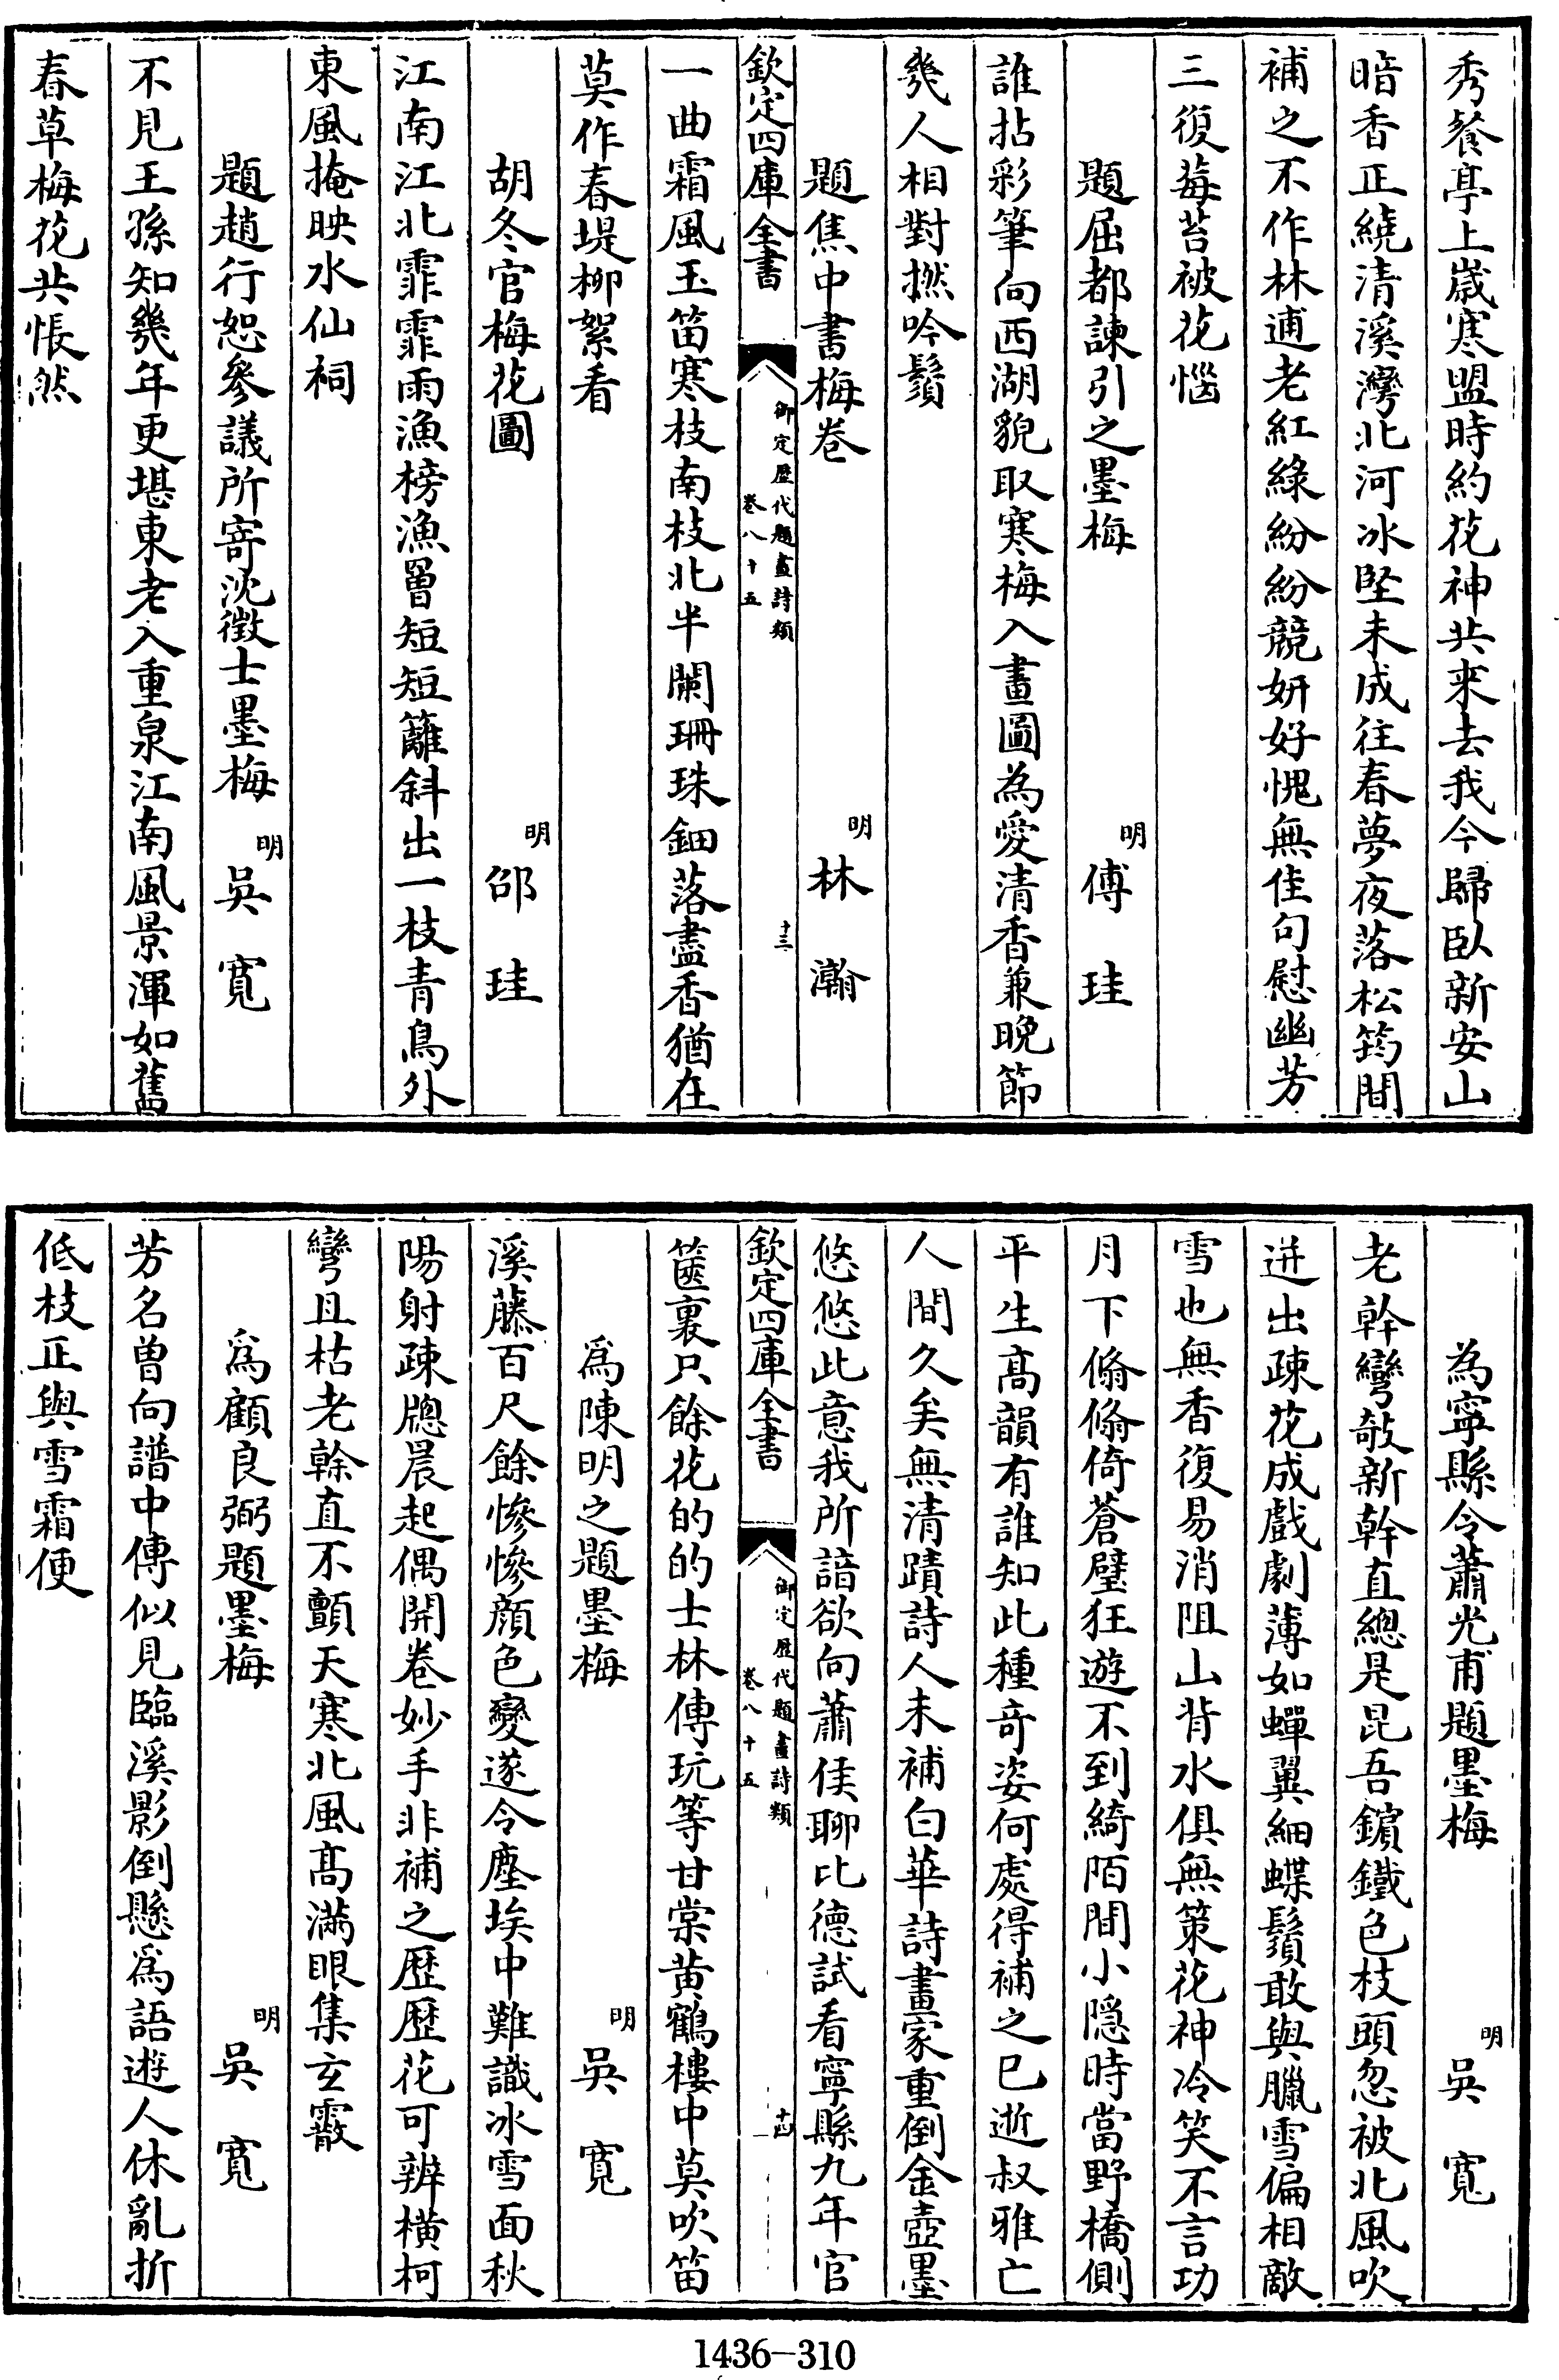 秀餐亭上嵗寒盟時約花神共来去我今歸臥新安山
暗香正繞清溪灣北河冰堅未成往春夢夜落松筠間
補之不作林逋老紅綠紛紛競妍好愧無佳句慰幽芳
三復莓苔被花惱
題屈都諫引之墨梅
明
傅珪
誰拈彩筆向西湖貌取寒梅入畫圖為愛清香兼晚節
幾人相對撚吟鬚
題焦中書梅卷
明
林瀚
欽定四庫全書
御定歴代題畫詩類
卷八十五
十三
一曲霜風玉笛寒枝南枝北半闌珊珠鈿落盡香猶在
莫作春堤柳絮看
胡冬官梅花圖
明
邵珪
江南江北霏霏雨漁榜漁罾短短籬斜出一枝青鳥外
東風掩映水仙祠
題趙行恕參議所寄沈徵士墨梅
明
吳寛
不見王孫知幾年更堪東老入重泉江南風景渾如舊
春草梅花共悵然
為寧縣令蕭光甫題墨梅
明
吳寛
老幹彎敧新幹直總是昆吾鑌鐵色枝頭忽被北風吹
迸出疎花成戲劇薄如蟬翼細蝶鬚敢與臘雪偏相敵
雪也無香復易消阻山背水俱無策花神冷笑不言功
月下翛翛倚蒼壁狂遊不到綺陌間小隠時當野橋側
平生髙韻有誰知此種奇姿何處得補之已逝叔雅亡
人間久矣無清蹟詩人未補白華詩畫家重倒金壺墨
悠悠此意我所諳欲向蕭侯聊比德試看寧縣九年官
欽定四庫全書
御定歴代題畫詩類
卷八十五
十四
篋裏只餘花的的士林傳玩等甘棠黄鶴樓中莫吹笛
爲陳明之題墨梅
明
吳寛
溪藤百尺餘慘慘顔色變遂令塵埃中難識冰雪面秋
陽射疎牕晨起偶開卷妙手非補之歴歴花可辨橫柯
彎且枯老榦直不顫天寒北風髙滿眼集玄霰
爲顧良弼題墨梅
明
吳寛
芳名曽向譜中傳似見臨溪影倒懸爲語遊人休亂折
低枝正與雪霜便
1436-310